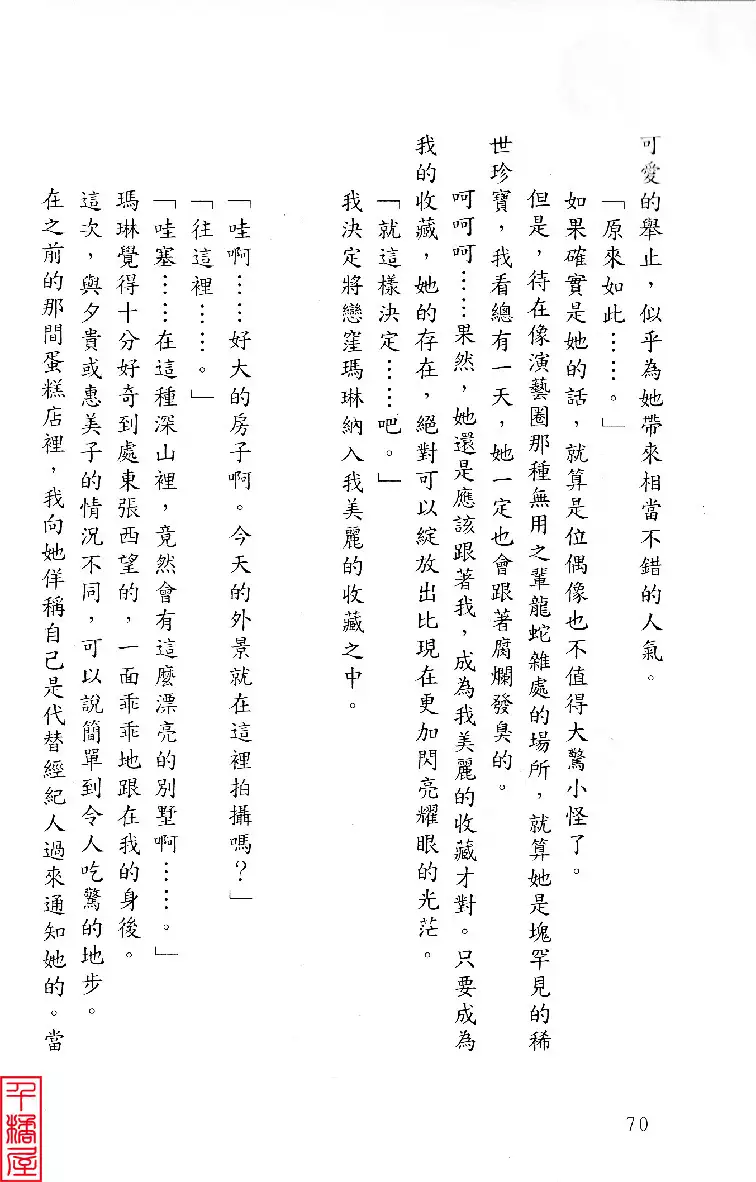 可愛的舉止，似乎為她帶來相當不錯的人氣。
「原來如此……。」
如果確實是她的話，就算是位偶像也不值得大驚小怪了。
但是，待在像演藝圈那種無用之輩龍蛇雜處的場所，就算她是塊罕見的稀
世珍寶，我看總有一天，她一定也會跟著腐爛發臭的。
呵呵呵……果然，她還是應該跟著我，成為我美麗的收藏才對。只要成為
我的收藏，她的存在，絕對可以綻放出比現在更加閃亮耀眼的光茫。
「就這樣決定……吧。」
我決定將戀窪瑪琳納入我美麗的收藏之中。
「哇啊……好大的房子啊。今天的外景就在這裡拍攝嗎？」
「往這裡……。」
「哇塞……在這種深山裡，竟然會有這麼漂亮的別墅啊……。」
瑪琳覺得十分好奇到處東張西望的，一面乖乖地跟在我的身後。
這次，與夕貴或惠美子的情況不同，可以說簡單到令人吃驚的地步。
在之前的那間蛋糕店裡，我向她佯稱自己是代替經紀人過來通知她的。當
70